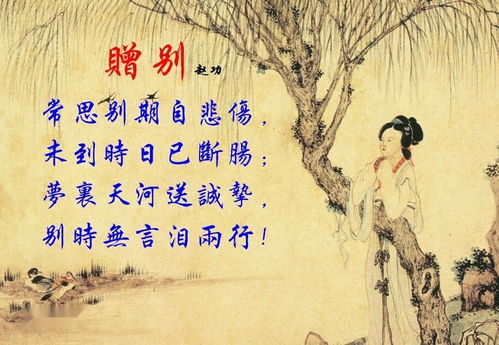 贈别 赵功
常思别期自悲傷，
未到時日已斷腸；
夢裏天河送誠摯，
别時無言泪兩行！